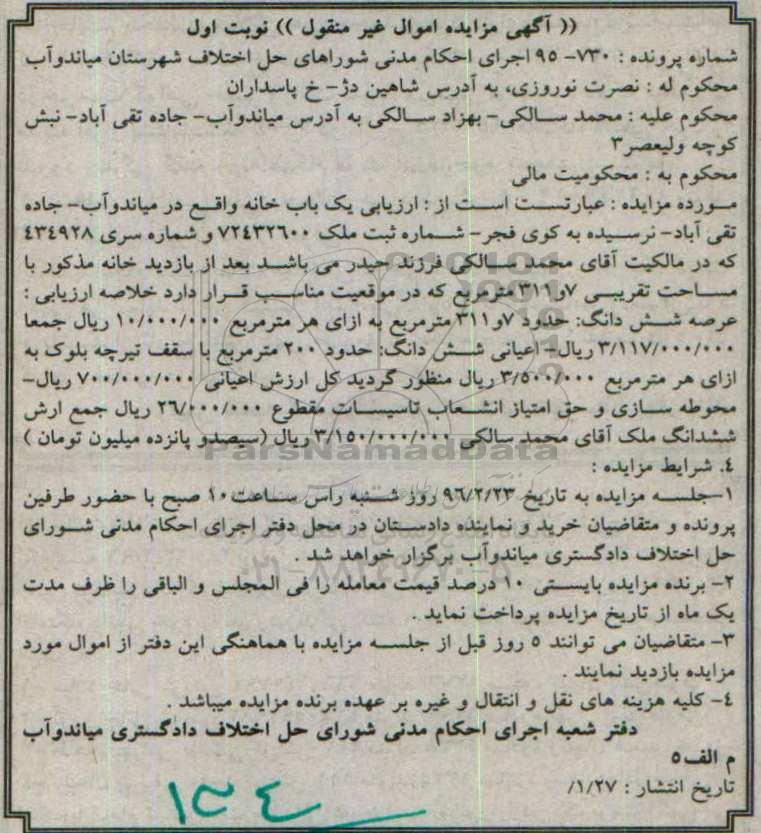 (( آگهی مزایده اموال غیر منقول )) نوبت اول
شماره پرونده : ۷۳۰- ۹۵ اجرای احکام مدنی شوراهای حل اختلاف شهرستان میاندوآب
محکوم له : نصرت نوروزی، به آدرس شاهین دژ- خ پاسداران
محکوم علیه : محمد سالکی- بهزاد سالکی به آدرس میاندوآب- جاده تقی آباد- نبش
کوچه ولیعصر۳
محکوم به : محکومیت مالی
مورده مزایده : عبارتست است از : ارزیابی یک باب خانه واقع در میاندوآب- جاده
تقی آباد- نرسیده به کوی فجر- شماره ثبت ملک ۷۲٤۳۲٦۰۰ و شماره سری ٤۳٤۹۲۸
که در مالکیت آقای محمد سالکی فرزند حیدر می باشد بعد از بازدید خانه مذکور با
مساحت تقریبی ۷و۳۱۱ مترمربع که در موقعیت مناسب قرار دارد خلاصه ارزیابی :
عرصه شش دانگ: حدود ۷و۳۱۱ مترمربع به ازای هر مترمربع ۱۰/۰۰۰/۰۰۰ ریال جمعا
۳/۱۱۷/۰۰۰/۰۰۰ ریال- اعیانی شش دانگ: حدود ۲۰۰ مترمربع با سقف تیرچه بلوک به
ازای هر مترمربع ۳/۵۰۰/۰۰۰ ریال منظور گردید کل ارزش اعیانی ۷۰۰/۰۰۰/۰۰۰ ریال-
محوطه سازی و حق امتیاز انشعاب تاسیسات مقطوع ۲٦/۰۰۰/۰۰۰ ریال جمع ارش
ششدانگ ملک آقای محمد سالکی ۳/۱۵۰/۰۰۰/۰۰۰ ریال (سیصدو پانزده میلیون تومان )
٤. شرایط مزایده :
۱-جلسه مزایده به تاریخ ۹٦/۲/۲۳ روز شنبه راس ساعت۱۰ صبح با حضور طرفین
پرونده و متقاضیان خرید و نماینده دادستان در محل دفتر اجرای احکام مدنی شورای
حل اختلاف دادگستری میاندوآب برگزار خواهد شد .
۲- برنده مزایده بایستی ۱۰ درصد قیمت معامله را فی المجلس و الباقی را ظرف مدت
یک ماه از تاریخ مزایده پرداخت نماید .
۳- متقاضیان می توانند ۵ روز قبل از جلسه مزایده با هماهنگی این دفتر از اموال مورد
مزایده بازدید نمایند .
٤- کلیه هزینه های نقل و انتقال و غیره بر عهده برنده مزایده میباشد .
دفتر شعبه اجرای احکام مدنی شورای حل اختلاف دادگستری میاندوآب
م الف۵
تاریخ انتشار : ۱/۲۷/
۱۳٤
ParsNamadData